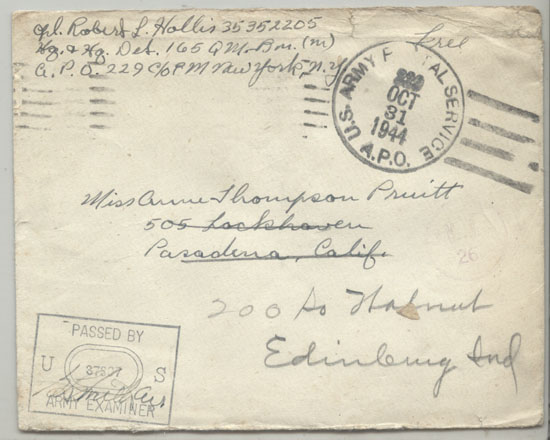 Cpl. Robert L. Hollis 35352205
Hq. & Hq. Det. 165 QM. Bn. (m)
A.P.O. 229 c/o P.M New York, N.Y.
Free
U.S. ARMY P TAL SERVICE
OCT
31
1944
A.P.O.
Miss Anne Thompson Pruitt
505 Lockhaven
Pasadena, Calif.
26
200 So Walnut
Edinburg Ind
PASSED BY
U S
ARMY EXAMINER